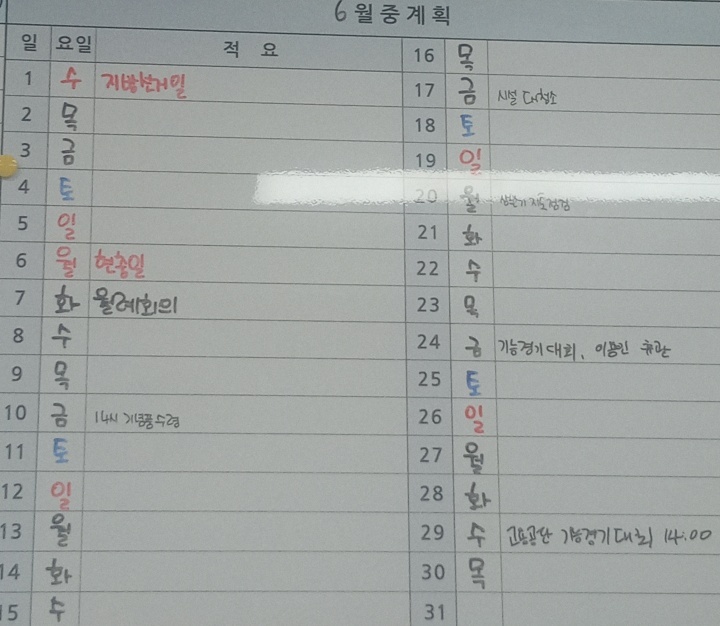 6월중계획
일 요일 적 요
1 수 지방선거일
2 목
3 금
4 토
5 일
6 월 현충일
7 화 월례회의
8 수
9 목
10 금 14시 기념품수령
11 토
12 일
13 월
14 화
15 수
16 목
17 금 시설 대청소
18 토
19 일
20 월 상반기 지도점검
21 화
22 수
23 목
24 금 기능경기대회, 이용인 휴관
25 토
26 일
27 월
28 화
29 수 고용공단 기능경기대회 14:00
30 목
31